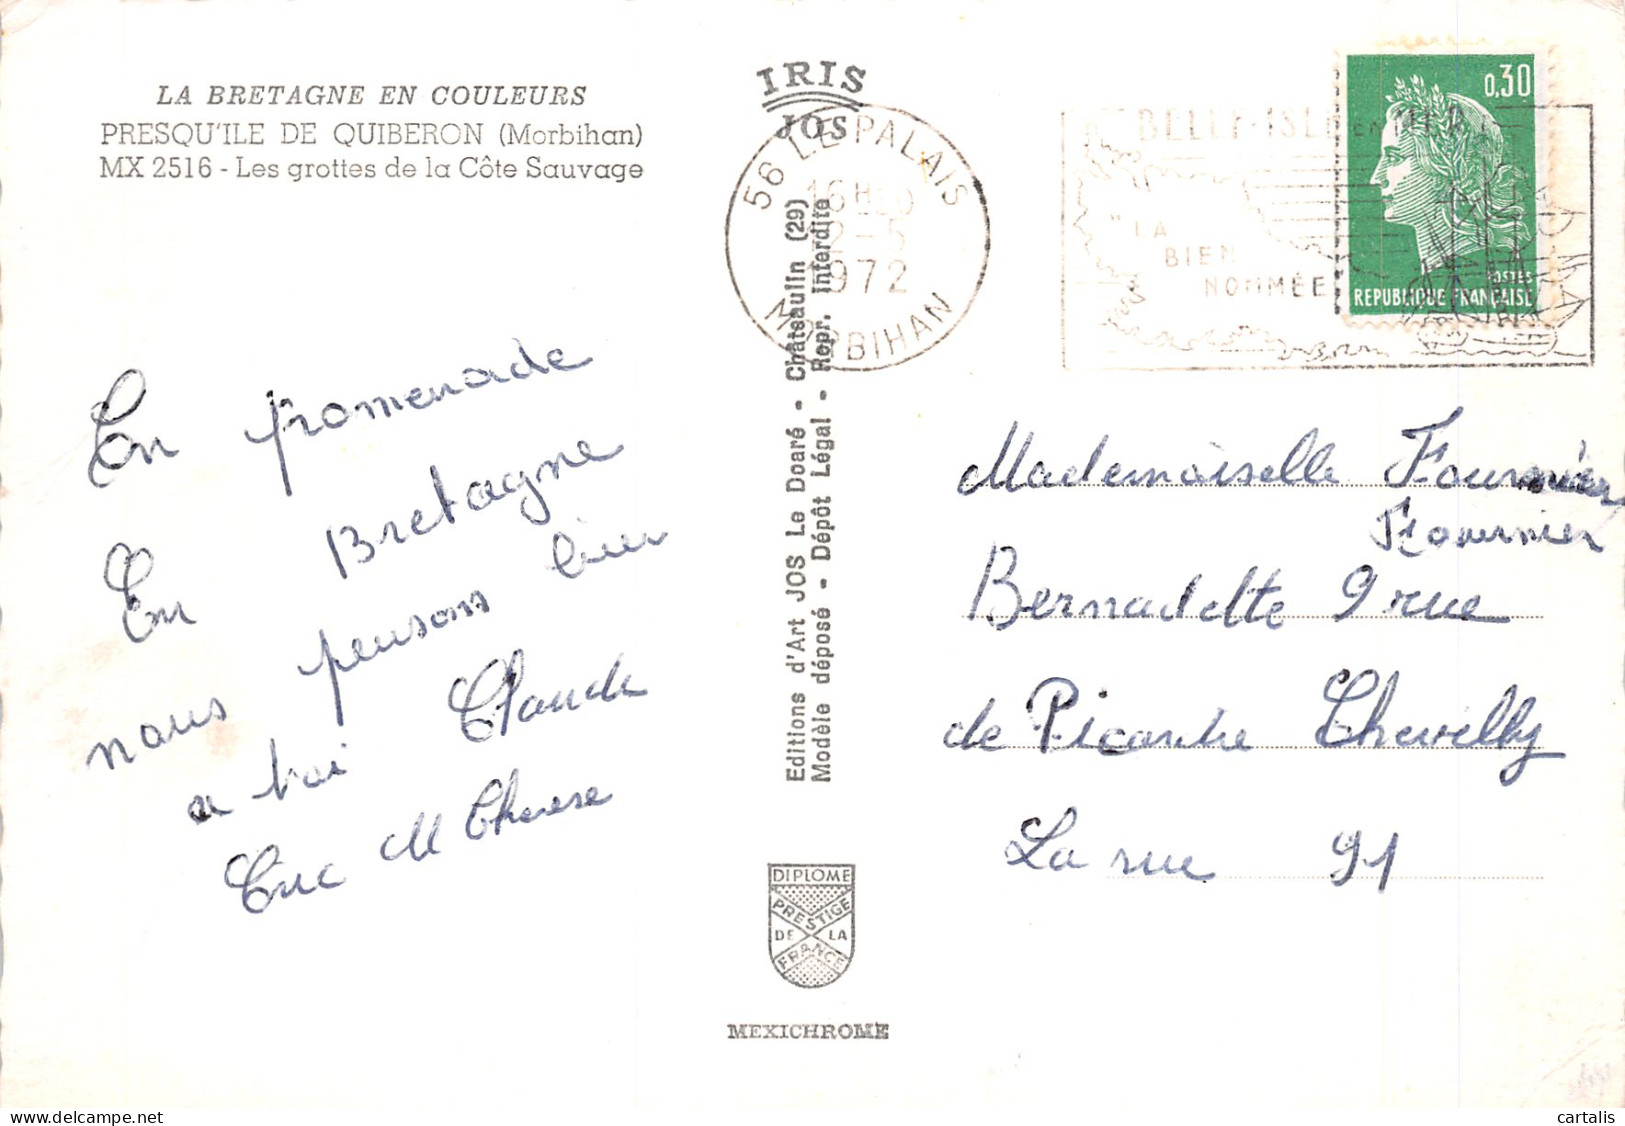 LA BRETAGNE EN COULEURS
PRESQU'ILE DE QUIBERON (Morbihan)
MX 2516 - Les grottes de la Côte Sauvage
En promenade
En Bretagne
nous pensons bien
a toi Claude
Luc M Therese
IRIS
JOS
56 LE PALAIS
16H
12-5
1972
MORBIHAN
BELLE-ISLE EN MER
"LA
BIEN
NOMMÉE
0,30
POSTES
REPUBLIQUE FRANÇAISE
Editions d'Art JOS Le Doaré - Châteaulin (29)
Modèle déposé - Dépôt Légal - Repr. interdite
Mademoiselle Fournier
Fournier
Bernadette 9 rue
de Picardie Chevilly
La rue 91
DIPLOME
PRESTIGE
DE LA
FRANCE
MEXICHROME
cartalis